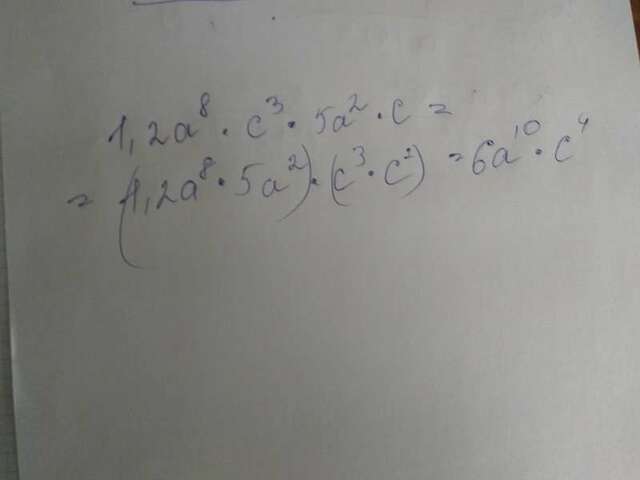 1,2a⁸ · c³ · 5a² · c =
= (1,2a⁸ · 5a²) · (c³ · c¹) = 6a¹⁰ · c⁴